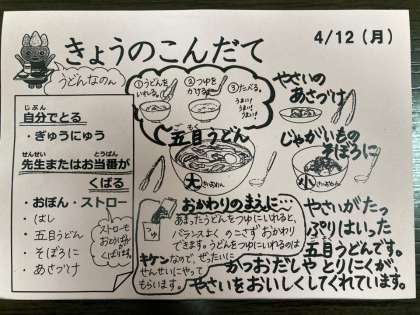 きょうのこんだて
4/12(月)
うどんなのん
自分でとる
じぶん
・ぎゅうにゅう
せんせい
とうばん
先生またはお当番が
くばる
・おぼん・ストロー
・はし
・五目うどん
・そぼろに
・あさづけ
ストローも
おとうばんが
くばります。
①うどんを
いれる。
②つゆを
かける
③たべる。
うまい!
うまい!
うまい!
ごもく
五目うどん
大
きいおわん
やさいの
あさづけ
じゃがいもの
そぼろに
小
さいおわん
おかわりのまえに…
つゆ
あまったうどんをつゆにいれると、
バランスよく のこさず おかわり
できます。うどんをつゆにいれるのは
キケンなので、ぜったいに
せんせいにやって
もらいます。
やさいがたっ
ぷりはいった
五目うどんです。
かつおだしや とりにくが、
やさいをおいしくしてくれています。